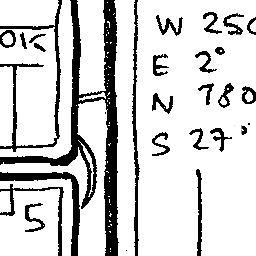 OK
W 250
E 2°
N 780
S 27°
5